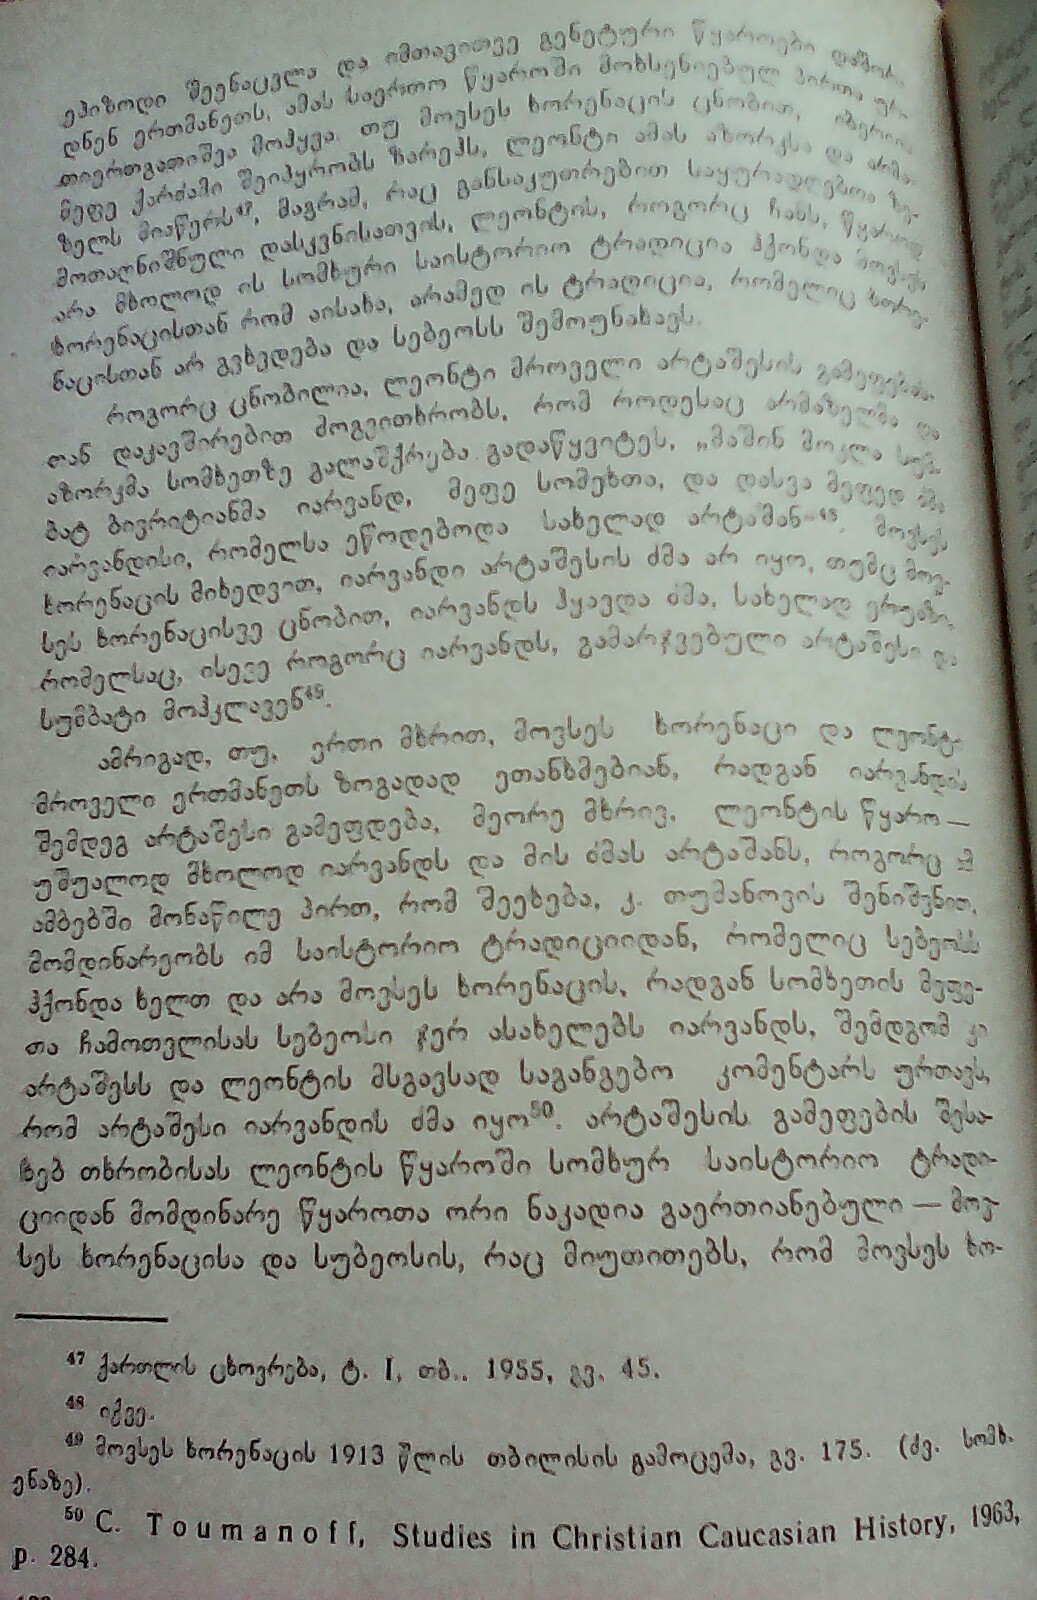 ეპიზოდი შეენაცვლა და იმთავითვე გენეტური წყაროები
დნენ ერთმანეთს, ამას საერთო წყაროში მოხსენიებულ პირთა
თიერთგათიშვა მოჰყვა. თუ მოვსეს ხორენაცის ცნობით, იბერიის
მეფე ქარძამი შეიპყრობს ზარეჰს, ლეონტი ამას აზორკსა და არმა-
ზელს მიაწერს⁴⁷, მაგრამ, რაც განსაკუთრებით საყურადღებოა ზე-
მოთაღნიშნული დასკვნისათვის, ლეონტის, როგორც ჩანს, წყაროდ
არა მხოლოდ ის სომხური საისტორიო ტრადიცია ჰქონდა მოვსეს
ხორენაცისთან რომ აისახა, არამედ ის ტრადიცია, რომელიც ხორე-
ნაცისთან არ გვხვდება და სებეოსს შემოუნახავს.
როგორც ცნობილია, ლეონტი მროველი არტაშესის გამეფებას-
თან დაკავშირებით მოგვითხრობს, რომ როდესაც არმაზელმა და
აზორკმა სომხეთზე გალაშქრება გადაწყვიტეს, „მაშინ მოკლა სუმ-
ბატ ბივრიტიანმა იარვანდ, მეფე სომეხთა, და დასვა მეფედ ძმა
იარვანდისი, რომელსა ეწოდებოდა სახელად არტაშან“⁴⁸. მოვსეს
ხორენაცის მიხედვით, იარვანდი არტაშესის ძმა არ იყო, თუმც მოვ-
სეს ხორენაცისვე ცნობით, იარვანდს ჰყავდა ძმა, სახელად ერუაზი,
რომელსაც, ისევე როგორც იარვანდს, გამარჯვებული არტაშესი და
სუმბატი მოჰკლავენ⁴⁹.
ამრიგად, თუ, ერთი მხრით, მოვსეს ხორენაცი და ლეონტი
მროველი ერთმანეთს ზოგადად ეთანხმებიან, რადგან იარვანდის
შემდეგ არტაშესი გამეფდება, მეორე მხრივ, ლეონტის წყარო —
უშუალოდ მხოლოდ იარვანდს და მის ძმას არტაშანს, როგორც ამ
ამბებში მონაწილე პირთ, რომ შეეხება, კ. თუმანოვის შენიშვნით,
მომდინარეობს იმ საისტორიო ტრადიციიდან, რომელიც სებეოსს
ჰქონდა ხელთ და არა მოვსეს ხორენაცის, რადგან სომხეთის მეფე-
თა ჩამოთვლისას სებეოსი ჯერ ასახელებს იარვანდს, შემდგომ კი
არტაშესს და ლეონტის მსგავსად საგანგებო კომენტარს ურთავს,
რომ არტაშესი იარვანდის ძმა იყო⁵⁰. არტაშესის გამეფების შესა-
ხებ თხრობისას ლეონტის წყაროში სომხურ საისტორიო ტრადი-
ციიდან მომდინარე წყაროთა ორი ნაკადია გაერთიანებული — მოვ-
სეს ხორენაცისა და სუბეოსის, რაც მიუთითებს, რომ მოვსეს ხო-
⁴⁷ ქართლის ცხოვრება, ტ. I, თბ., 1955, გვ. 45.
⁴⁸ იქვე.
⁴⁹ მოვსეს ხორენაცის 1913 წლის თბილისის გამოცემა, გვ. 175. (ძვ. სომხ.
ენაზე).
⁵⁰ C. Toumanoff, Studies in Christian Caucasian History, 1963,
p. 284.